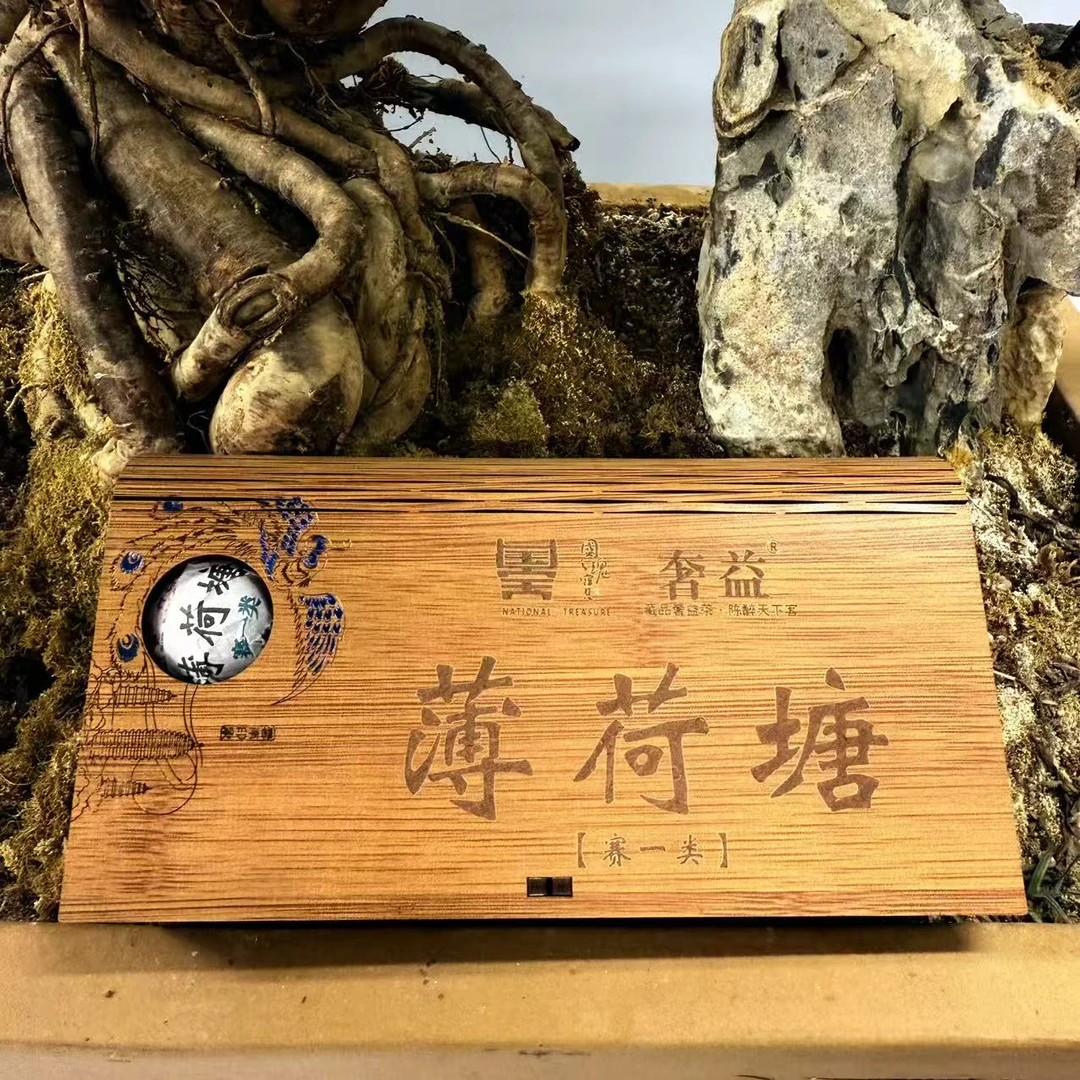 薄荷塘
赛一类
國
寶
NATIONAL TREASURE
奢益®
藏品奢益茶·陈醉天下客
薄荷塘
【赛一类】